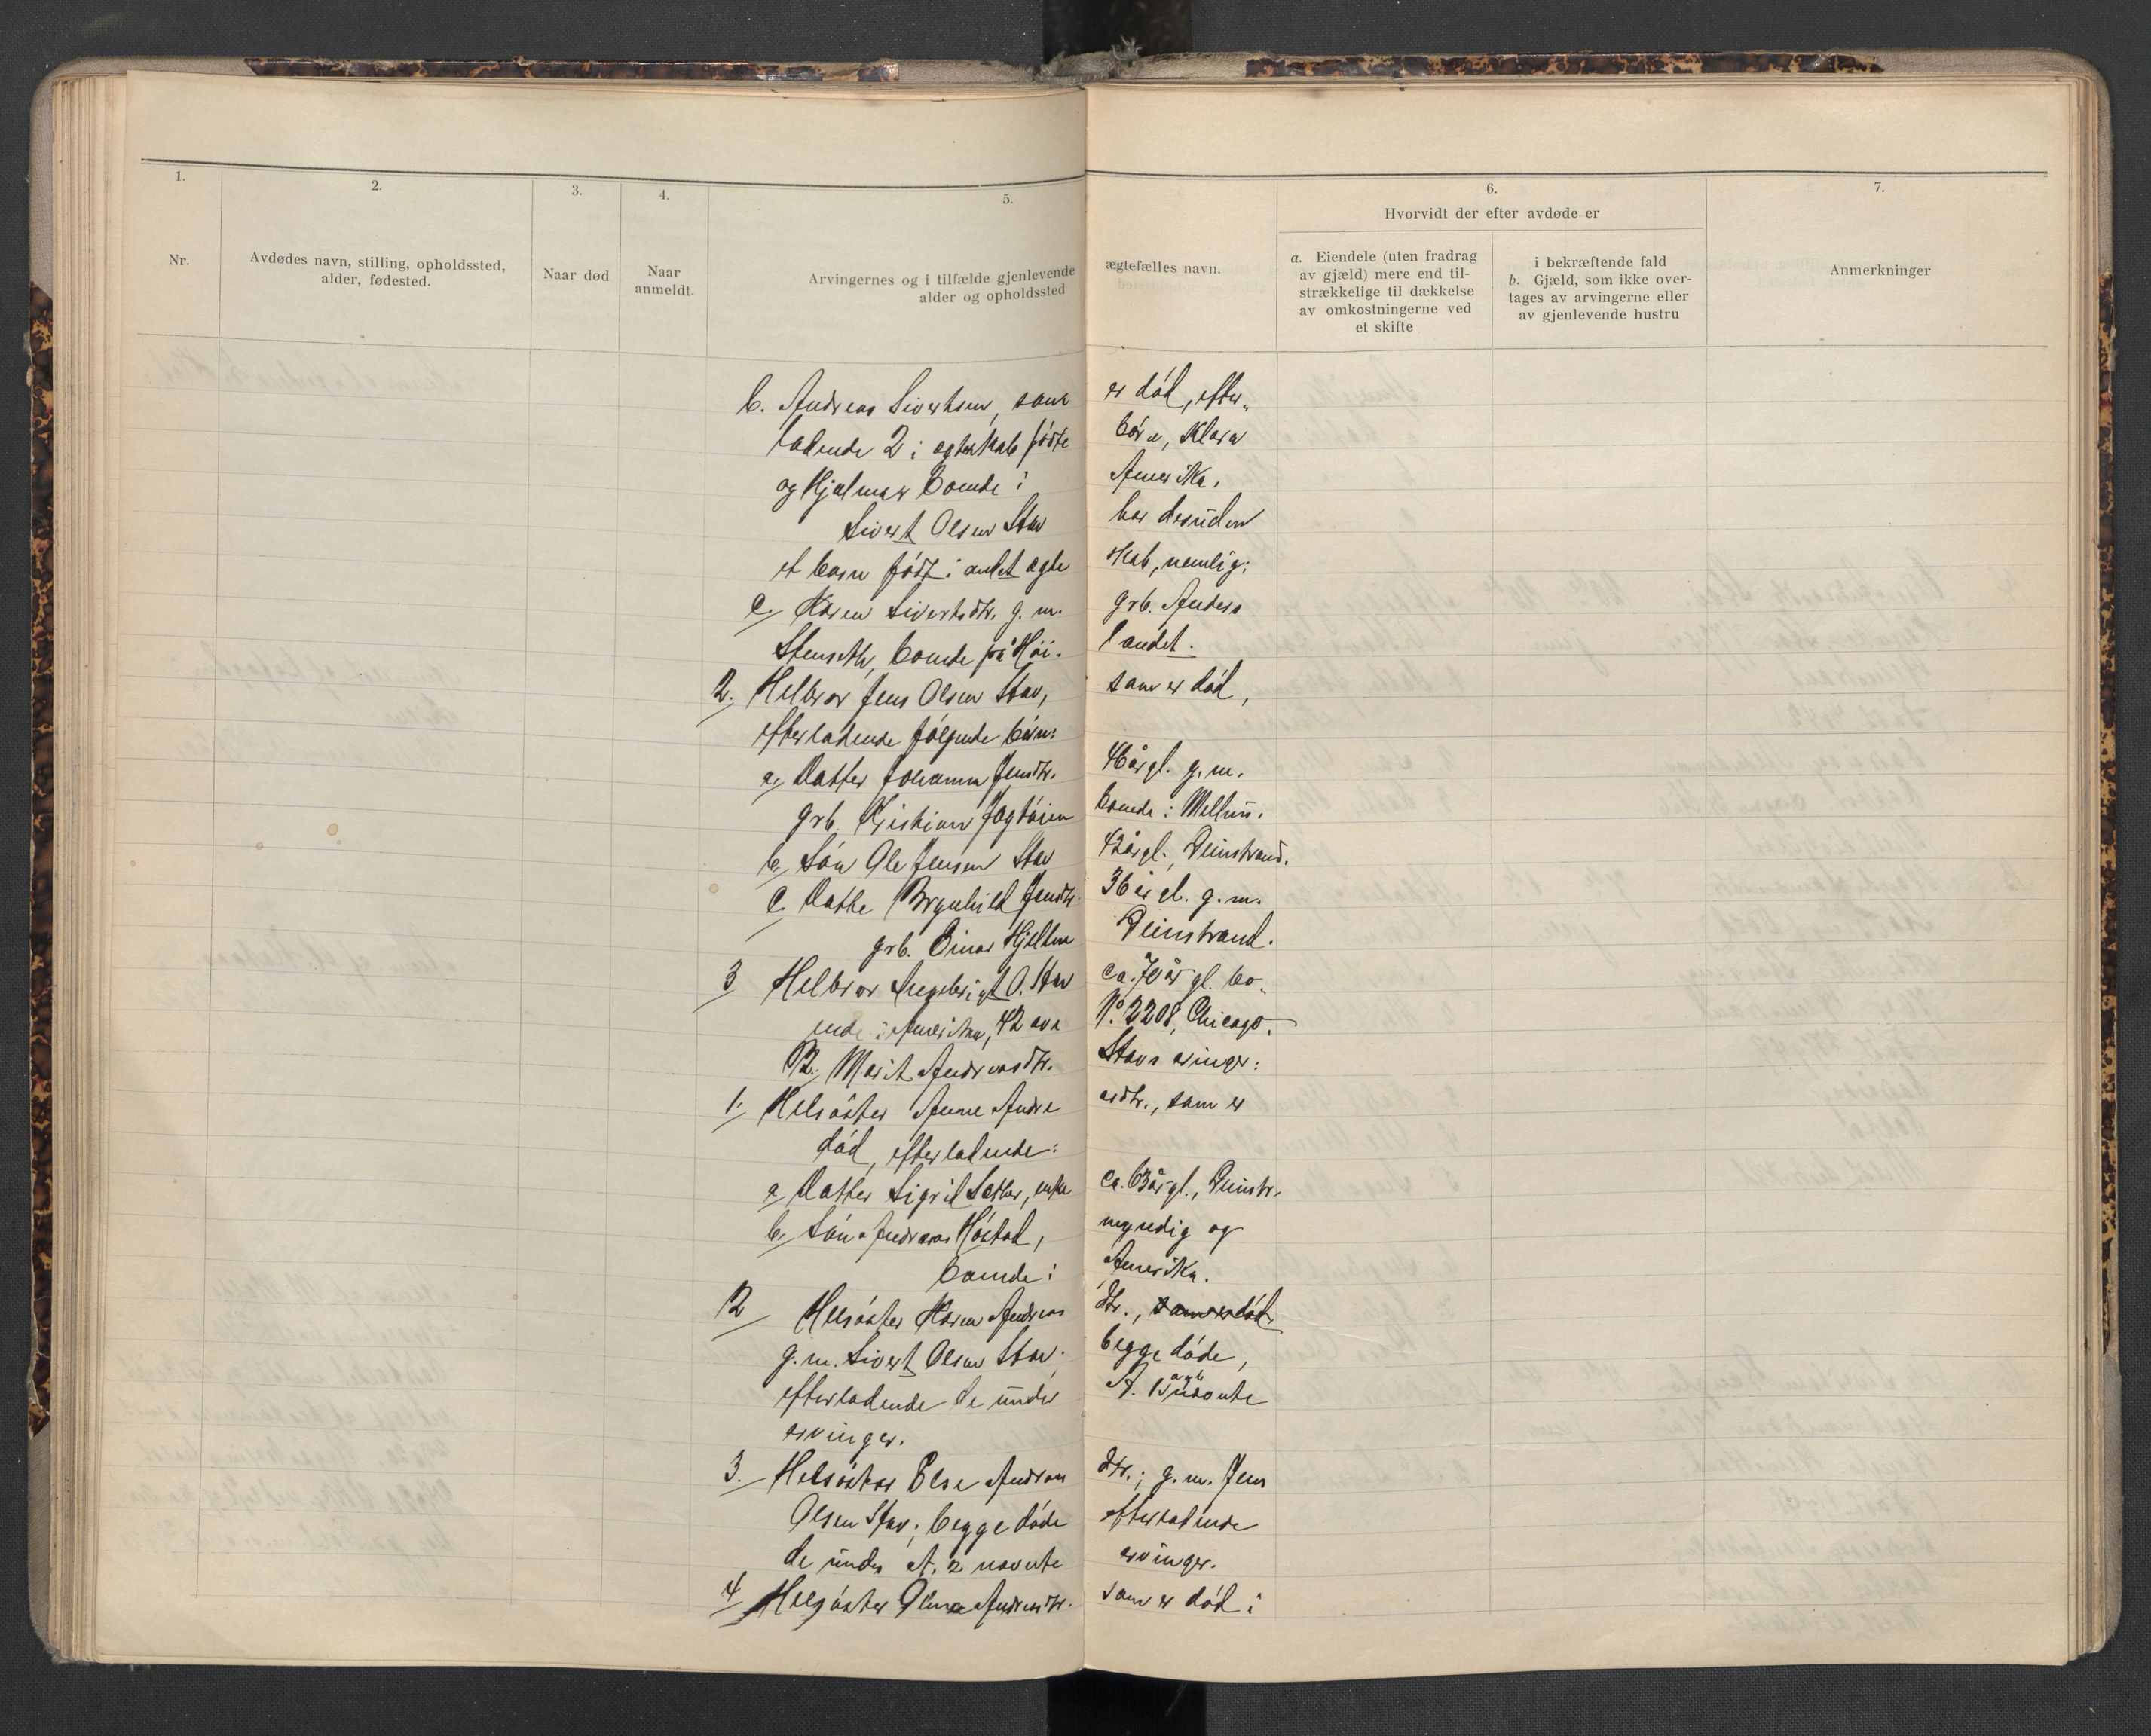 1.
2.
3.
4.
5.
6.
7.
Nr.
Avdødes navn, stilling, opholdssted,
alder, fødested.
Naar død
Naar
anmeldt.
Arvingernes og i tilfælde gjenlevende ægtefælles navn.
alder og opholdssted
Hvorvidt der efter avdøde er
a. Eiendele (uten fradrag
av gjæld) mere end til-
strækkelige til dækkelse
av omkostningerne ved
et skifte
i bekræftende fald
b. Gjæld, som ikke over-
tages av arvingerne eller
av gjenlevende hustru
Anmerkninger
b. Andreas Sivertsen, som er död, efter-
ladende 2 i egteskab födte börn, Klara
og Hjalmar boende i Amerika.
Sivert Olsen Stav har desuden
et barn födt i andet egteskab, nemlig:
c. Karen Sivertsdtr. g. m. grb. Anders
Stenseth, boende på Höilandet.
2. Helbror Jens Olsen Stav, som er död,
efterladende fölgende börn:
a. Datter Johanna Jensdtr. 46 årgl. g. m.
grb. Kristian boende i Melhus.
b. Sön Ole Jensen Stav 42 årgl.,
c. Datte Brynhild Jensdtr. 36 årgl. g. m.
grb. Einar Hjellem
3 Helbror Ingebrigt O. Stav ca. 70 årgl. bo-
ende i Amerika, 42 ave No. 2208, Chicago.
B. Marit Andreasdtr. Stavs arvinger:
1. Helsöster Anne Andreasdtr., som er
död, efterladende:
a Datter Sigrid Sæther, enke ca. 63 årgl.,
b. Sön Andreas Höstad, myndig og
boende i Amerika.
2 Helsöster Karen Andreasdtr., som er död
g. m. Sivert Olsen Stav. begge döde,
efterladende de under A. 1 a og b nævnte
arvinger.
3. Helsöster Else Andreasdtr.; g. m. Jens
Olsen Stav; begge döde efterladende
de under A. 2 nævnte arvinger.
4 Helsöster Andreasdtr. som er död i